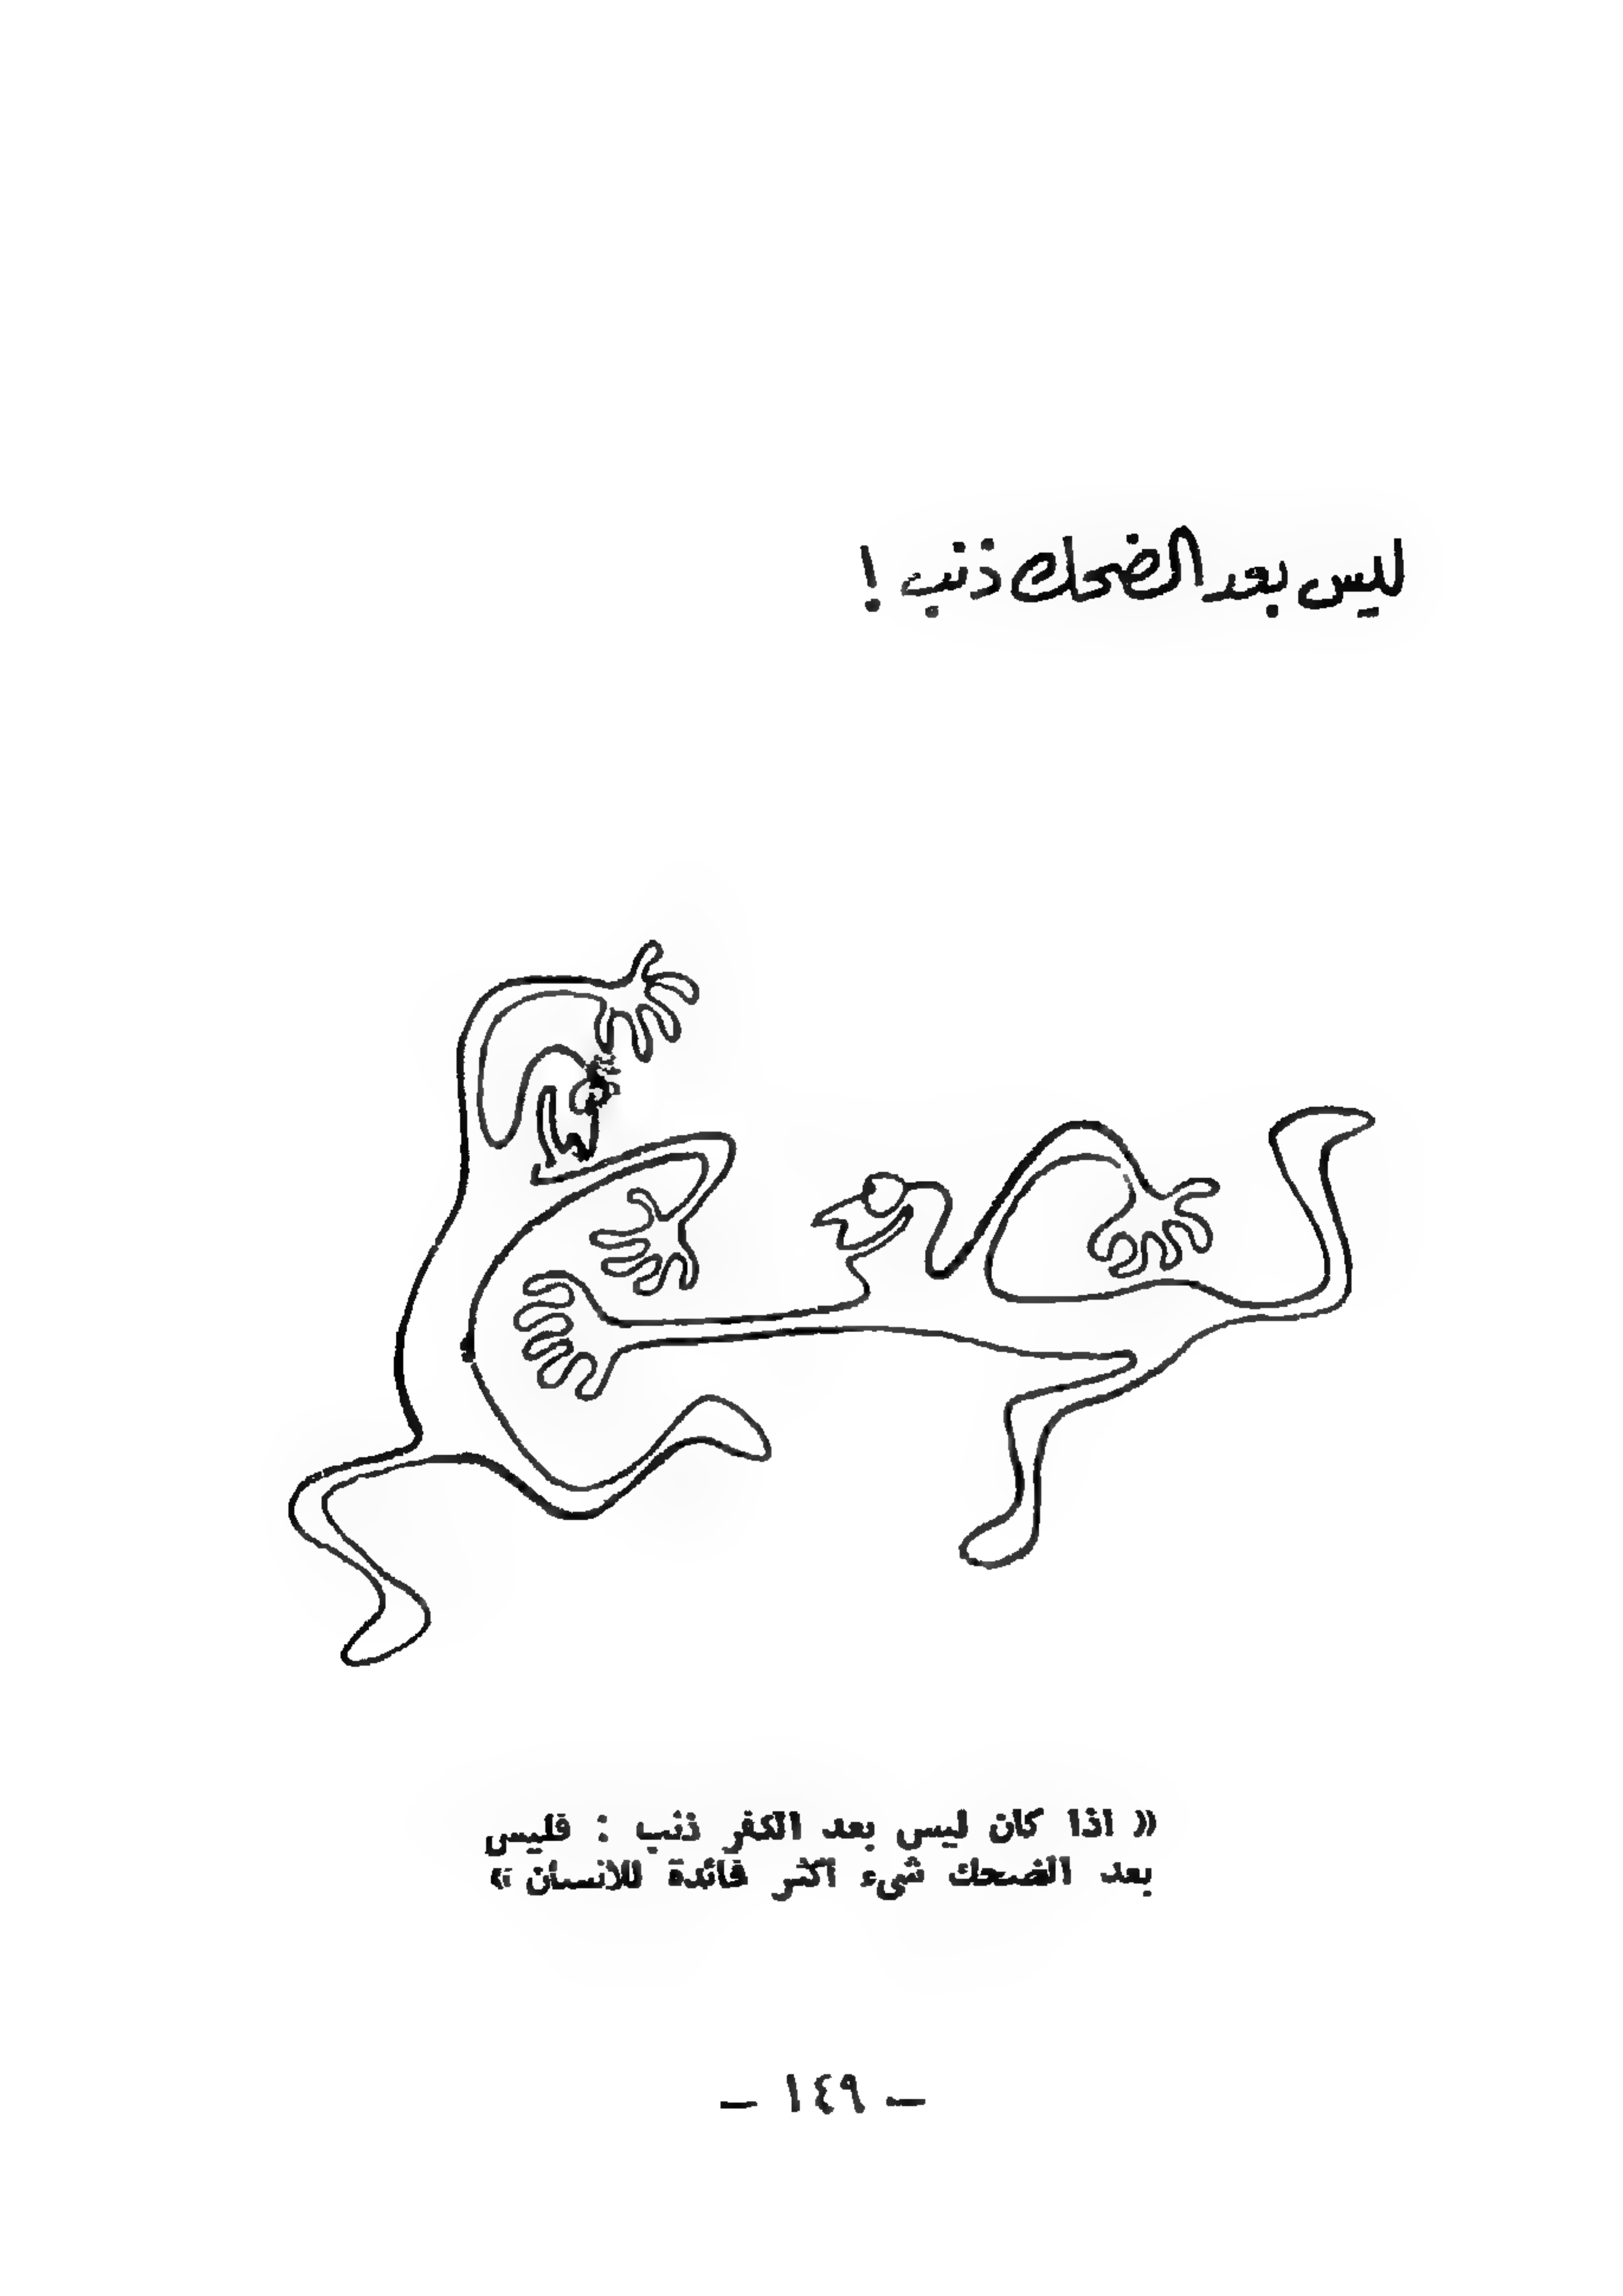 ليس بعد الضحك ذنب !
« اذا كان ليس بعد الكفر ذنب : فليس
بعد الضحك شىء أكثر فائدة للانسان »
— ١٤٩ —